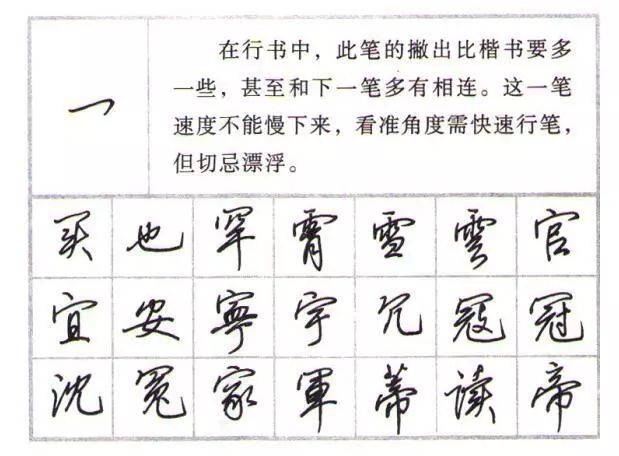 在行书中，此笔的撇出比楷书要多
一些，甚至和下一笔多有相连。这一笔
速度不能慢下来，看准角度需快速行笔，
但切忌漂浮。
买 也 罕 霄 雪 雲 官
宜 安 寧 宇 冗 寇 冠
沈 冤 家 軍 蒂 读 帝